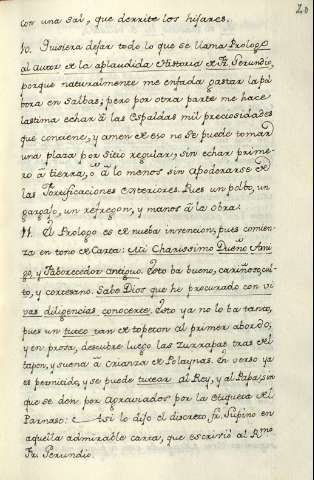 20
con una sal, que derrite los hijares.
10. Quisiera dejar todo lo que se llama Prologo
al autor de la aplaudida Historia de Fr. Gerundio,
porque naturalmente me enfada gastar la pol
bora en Salbas; pero por otra parte me hace
lastima echar à las Espaldas mil preciosidades
que contiene, y amen de eso no se puede tomar
una plaza por sitio regular, sin echar prime
ro à tierra, o à lo menos sin apoderarse de
las Fortificaciones exteriores. Pues un polbo, un
gargajo, un refregon, y manos à la obra.
11. El Prologo es de nueba invencion, pues comien
za en tono de Carta: Mi Charissimo Dueño, Ami
go, y Faborecedor antiguo. Esto ba bueno, cariñosqui
to, y cortesano. Sabe Dios que he procurado con vi
vas diligencias conocerte. Esto ya no lo ba tanto,
pues un tuteo tan de topeton al primer abordo,
y en prosa, descubre luego las zurrapas tras del
tapon, y suena à crianza de Pelaynas. En verso ya
es permitido, y se puede tutear al Rey, y al Papa, sin
que se don por agraviados por la etiqueta del
Parnaso: Asi lo dijo el discreto fr. Supino en
aquella admirable carta, que escrivió al Rmo
Fr. Gerundio.